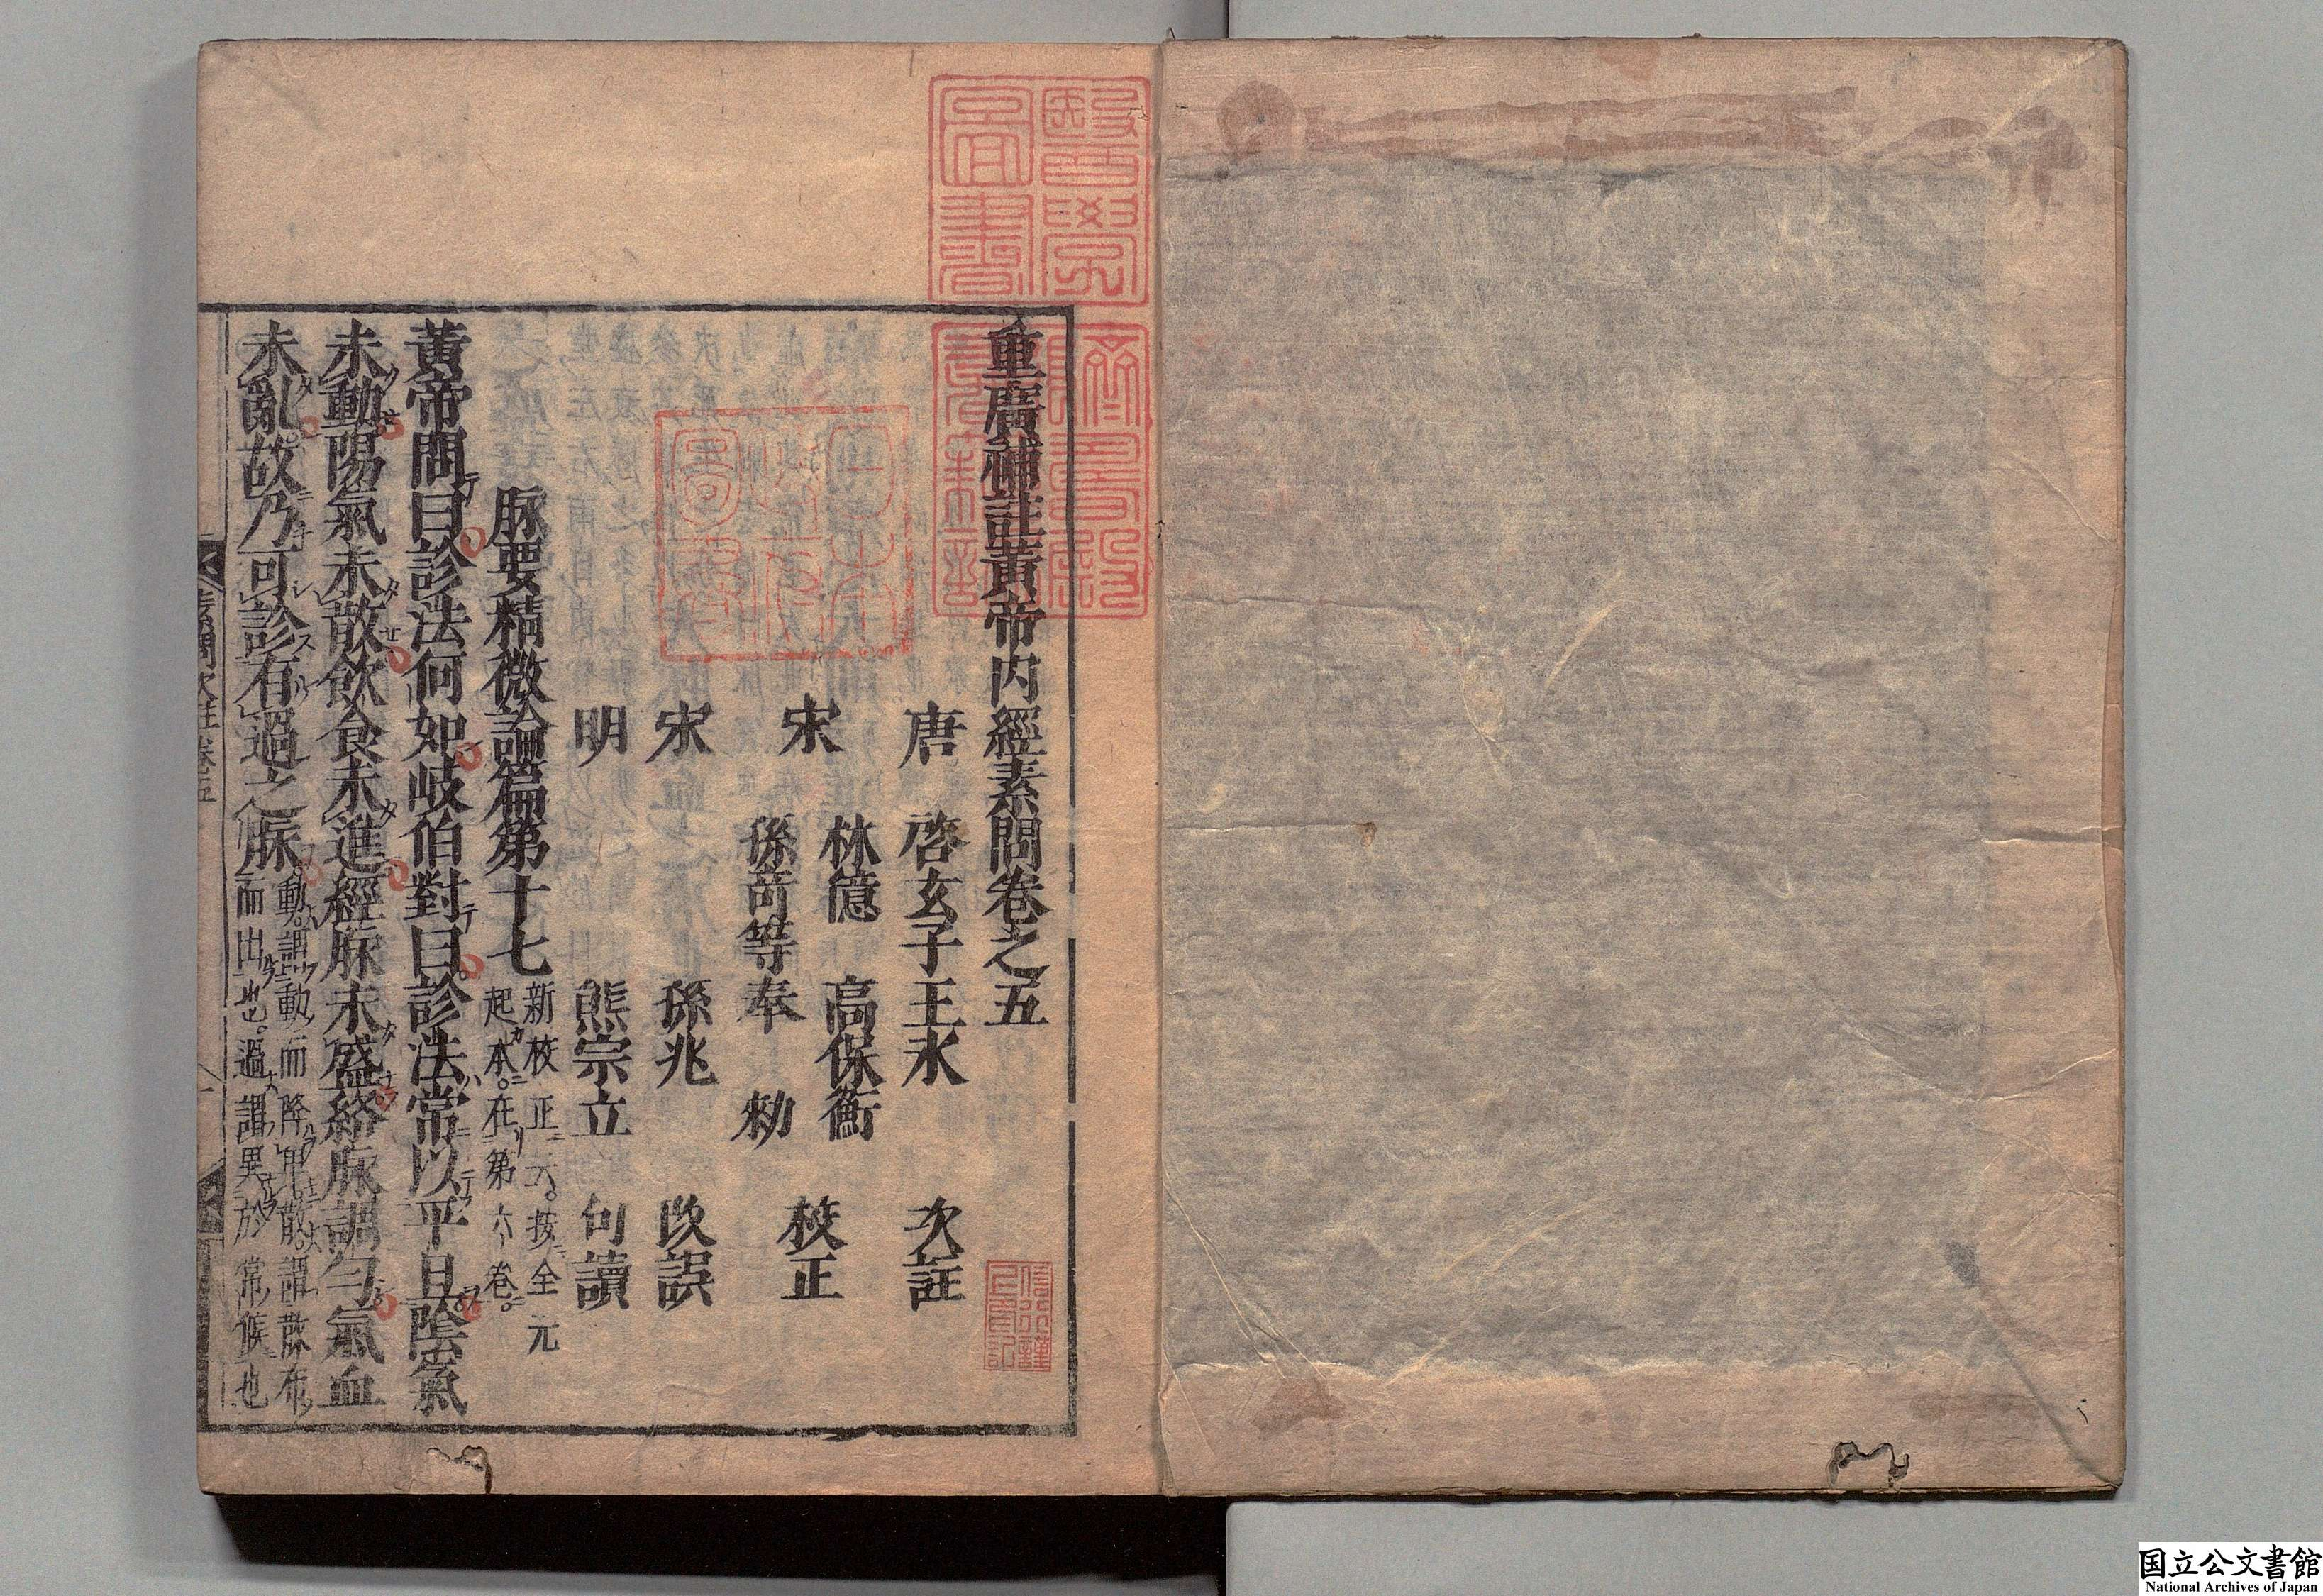 重廣補註黃帝内經素問卷之五
唐 啓玄子王氷 次註
宋 林億 高保衡
孫奇等奉 敕 校正
宋 孫兆 改誤
明 熊宗立 句讀
脉要精微論篇第十七 新校正云。按全元
起本。在第六卷。
黃帝問曰診法何如岐伯對曰診法常以平旦陰氣
未動陽氣未散飲食未進經脉未盛絡脉調匀氣血
未亂故乃可診有過之脉 動謂動而降卑散謂散布
而出也。過謂異於常候也
素問次註卷五 一
醫學圖書
躋壽殿書籍記
日本政府圖書
国立公文書館
National Archives of Japan